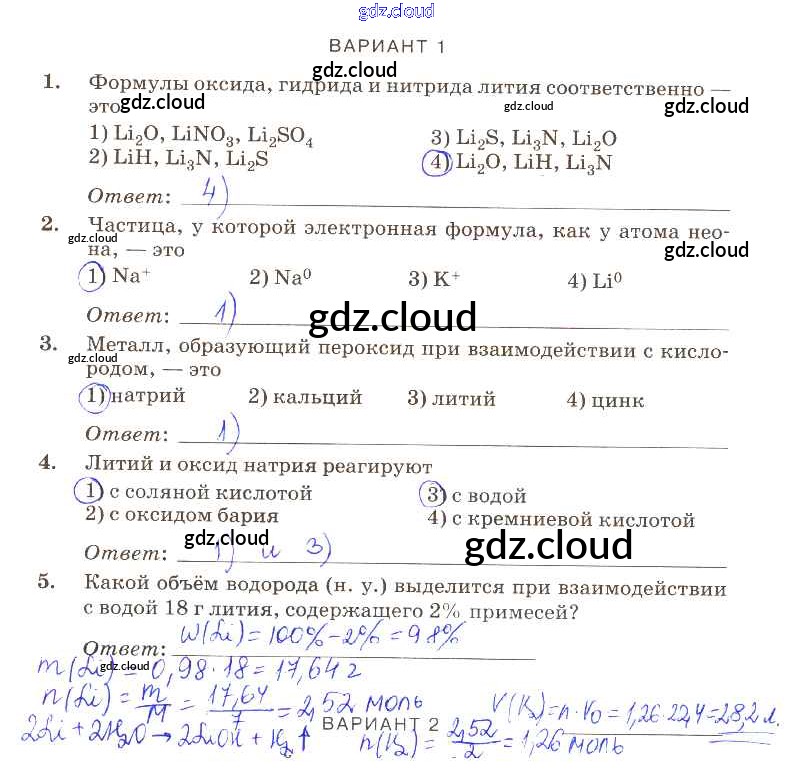 gdz.cloud
ВАРИАНТ 1
gdz.cloud
1. Формулы оксида, гидрида и нитрида лития соответственно —
это
gdz.cloud gdz.cloud gdz.cloud
1) Li₂O, LiNO₃, Li₂SO₄ 3) Li₂S, Li₃N, Li₂O
2) LiH, Li₃N, Li₂S 4) Li₂O, LiH, Li₃N
Ответ: 4)
2. Частица, у которой электронная формула, как у атома нео-
gdz.cloud gdz.cloud
на, — это
1) Na⁺ 2) Na⁰ 3) K⁺ 4) Li⁰
Ответ: 1)
gdz.cloud
3. Металл, образующий пероксид при взаимодействии с кисло-
gdz.cloud
родом, — это
1) натрий 2) кальций 3) литий 4) цинк
Ответ: 1)
4. Литий и оксид натрия реагируют
1) с соляной кислотой 3) с водой
2) с оксидом бария 4) с кремниевой кислотой
gdz.cloud gdz.cloud
Ответ: 1) и 3)
5. Какой объём водорода (н. у.) выделится при взаимодействии
с водой 18 г лития, содержащего 2% примесей?
gdz.cloud
Ответ: W(Li) = 100% - 2% = 98%
m(Li) = 0,98 · 18 = 17,64 г
gdz.cloud
n(Li) = m/M = 17,64/7 = 2,52 моль V(H₂) = n·V₀ = 1,26·22,4 = 28,2 л.
ВАРИАНТ 2
2Li + 2H₂O → 2LiOH + H₂↑ n(H₂) = 2,52/2 = 1,26 моль